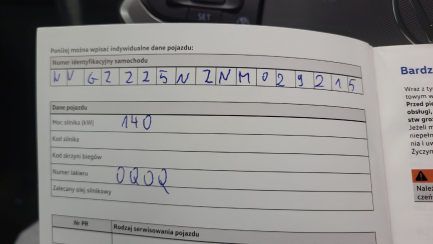 SET
Poniżej można wpisać indywidualne dane pojazdu:
Numer identyfikacyjny samochodu
W V G Z Z Z 5 N Z N M 0 2 9 2 1 5
Dane pojazdu
Moc silnika (kW) 140
Kod silnika
Kod skrzyni biegów
Numer lakieru 0Q0Q
Zalecany olej silnikowy
Nr PR Rodzaj serwisowania pojazdu
Bardz
Wraz z ty
towym w
Przed pie
obsługi,
stw gro
Jeżeli m
niepełn
nia i uw
Życzym
Należ
czeń